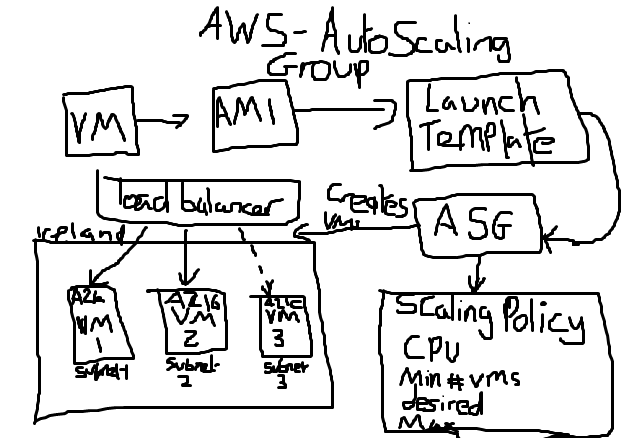 AWS - AutoScaling
Group
VM
AMI
Launch
Template
load balancer
Creates
VMs
ASG
Iceland
VM
1
Subnet-1
VM
2
Subnet-
2
VM
3
Subnet
3
Scaling Policy
CPU
Min # vms
desired
Max